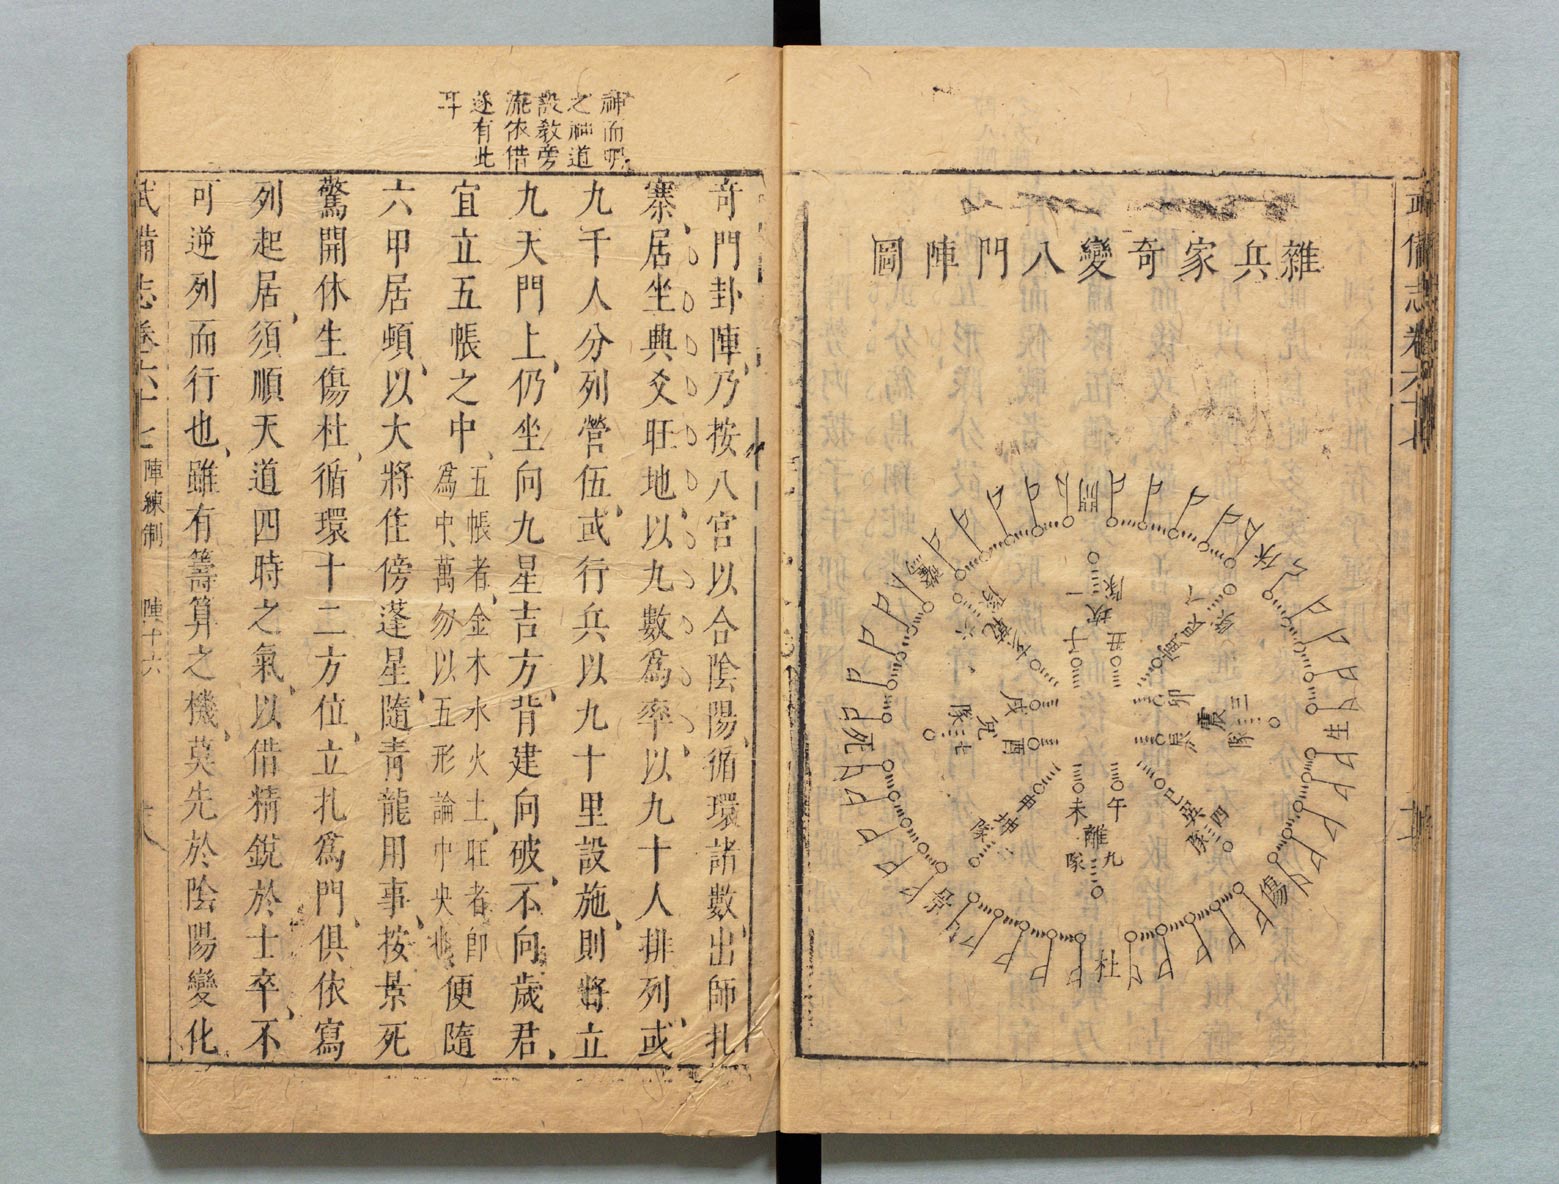 雜兵家奇變八門陣圖
開
休
生
傷
杜
景
死
驚
一
坎
隊
子
丑
艮
寅
卯
三
震
隊
辰
巳
巽
四
隊
午
未
離
九
隊
申
坤
隊
酉
兌
七
隊
戌
乾
六
武備志卷六十七
神而明
之神道
設教旁
流依借
遂有此
耳
奇門卦陣乃按八宮以合陰陽循環諸數出師扎
寨居坐典爻旺地以九數為率以九十人排列或
九千人分列營伍或行兵以九十里設施則將立
九天門上仍坐向九星吉方背建向破不向歲君
宜立五帳之中五帳者金木水火土旺者卽為中萬勿以五形論中央也便隨
六甲居頓以大將住傍蓬星隨青龍用事按景死
驚開休生傷杜循環十二方位立扎為門俱依寫
列起居須順天道四時之氣以借精銳於士卒不
可逆列而行也雖有籌算之機莫先於陰陽變化
武備志卷六十七
陣練制
陣十六